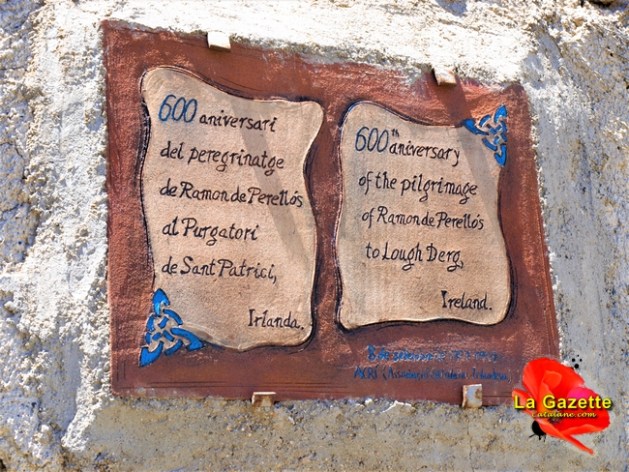 600 aniversari
del peregrinatge
de Ramon de Perellós
al Purgatori
de Sant Patrici,
Irlanda.
600th aniversary
of the pilgrimage
of Ramon de Perellós
to Lough Derg,
Ireland.
La Gazette
Catalane.com